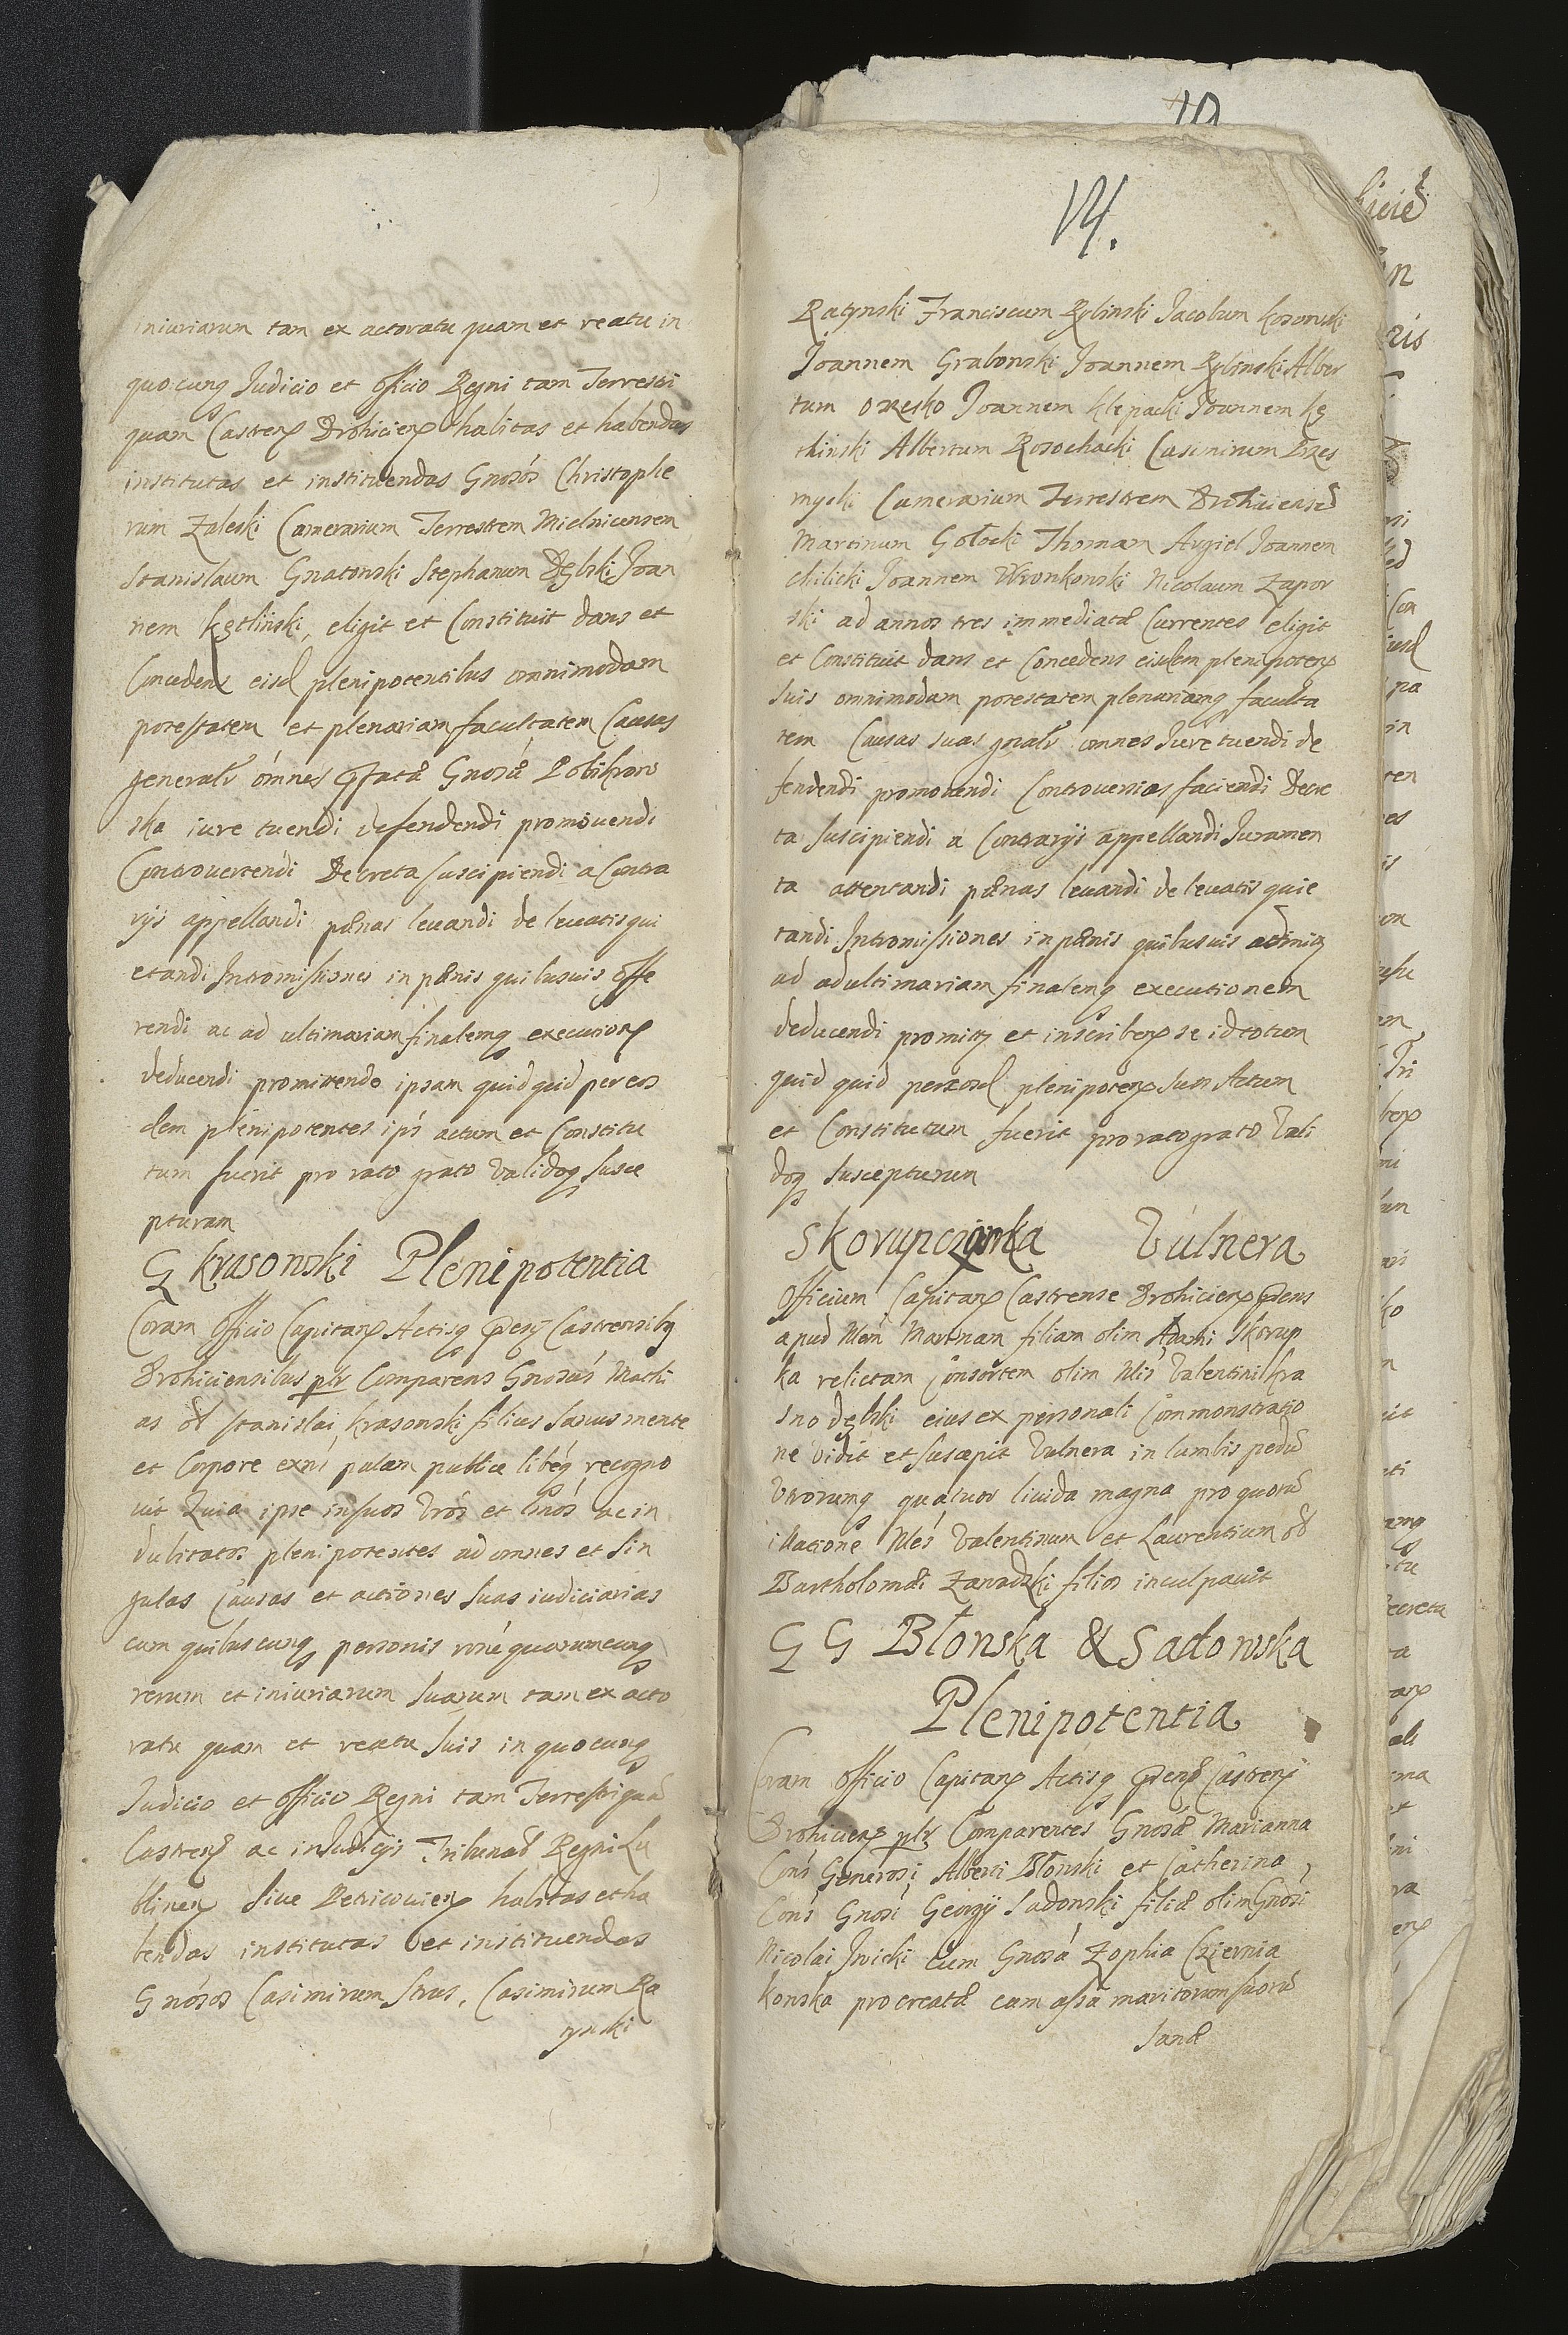 iniuriarum tam ex actoratu quam et reatu in
quocunq Judicio et Officio Regni tam Terrestri
quam Castren Drohicien habitas et habendas
institutas et instituendas Gnosos Christopho
rum Zaleski Camerarium Terrestrem Mielnicensem
Stanislaum Gnatowski Stephanum Dębski Joan
nem Kętliński, eligit et Constituit dans et
Concedens eisd plenipotentibus omnimodam
potestatem et plenariam facultatem Causas
generalr omnes Gnosæ Dobikow
ska iure tuendi defendendi promovendi
Controvertendi Decreta suscipiendi a Contra
rijs appellandi pænas levandi de levatis qui
etandi Intromissiones in pænis quibusvis offe
rendi ac ad ultimariam finalemq execution
deducendi promittendo ipsam quid quid per eos
dem plenipotentes ips actum et Constitu
tum fuerit pro rato grato validoq susce
pturam
G Krasowski Plenipotentia
Coram Officio Capitan Actisq Castrensibq
Drohiciensibus plr Comparens Gnosus Mathi
as ol Stanislai Krasowski filius sanus mente
et Corpore exns palam publice libeq recogno
vit Quia ipse in suos vros et lnos ac in
dubitatos plenipotentes ad omnes et sin
gulas Causas et actiones suas iudiciarias
cum quibuscunq personis rone quorumcunq
rerum et iniuriarum suarum tam ex acto
ratu quam et reatu suis in quocunq
Judicio et Officio Regni tam Terrestri quā
Castren ac in Judicijs Tribunal Regni Lu
blinen sive Petricovien habitas et ha
bendas institutas et instituendas
Gnosos Casimirum Strus, Casimirum Ra
tynski
14.
Ratynski Franciscum Rylinski Jacobum Kosowski
Joannem Grabowski Joannem Rylinski Alber
tum Orzesko Joannem Klepacki Joannem Kę
tlinski Albertum Rosochacki Casimirum Brzes
mycki Camerarium Terrestrem Drohiciensē
Martinum Gołocki Thomam Joannem
Chilicki Joannem Wronkowski Nicolaum Zapor
ski ad annos tres immediatæ Currentes eligit
et Constituit dans et Concedens eisdem plenipoten
suis omnimodam potestatem plenariamq faculta
tem Causas suas gnalr omnes Jure tuendi de
fendendi promovendi Controversias faciendi Decre
ta suscipiendi a Contrarijs appellandi Juramen
ta attentandi pænas levandi de levatis quie
tandi Intromissiones in pænis quibusvis
ad ad ultimariam finalemq executionem
deducendi promitt et inscriben se id totum
quid quid per eosd plenipoten suos Actum
et Constitutum fuerit pro rato grato Vali
doq suscepturum
Skorupczanka Vulnera
Officium Capitan Castrense Drohicien
apud Nlem Mariñam filiam olim Adami Skorup
ka relictam Consortem olim Nlis Valentini Kra
snodębski eius ex personali Commonstratio
ne vidit et suscepit Vulnera in lumbis pedū
Utrorumq quatuor livida magna pro quorū
illatione Nles Valentinum et Laurentium ol
Bartholomæi Zawadzki filios inculpavit
G G Błonska & Sadowska
Plenipotentia
Coram Officio Capitan Actisq Castren
Drohicien plr Comparentes Gnosæ Marianna
Cons Generosi Alberti Błonski et Catherina
Cons Gnosi Georgij Sadowski filiæ olim Gnosi
Nicolai Iwicki cum Gnosa Zophia Czernia
kowska procreatæ cum assa maritorum suorū
sanæ